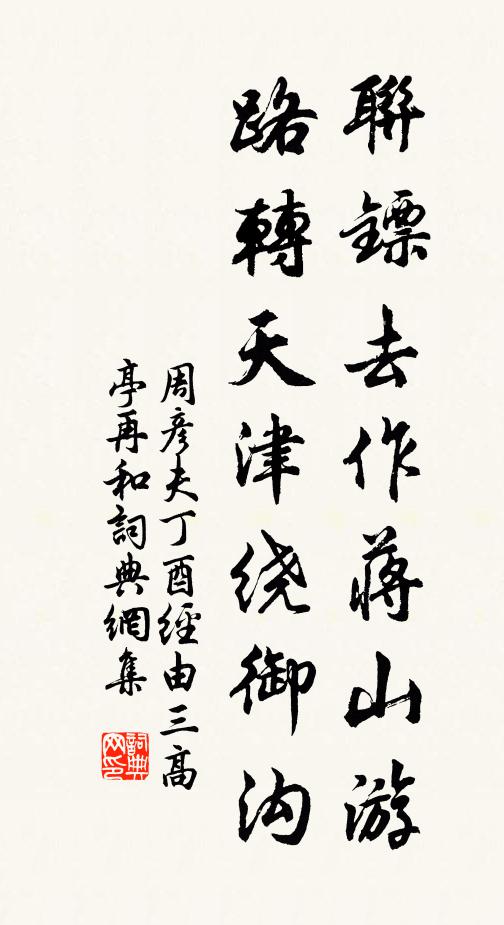 聯鏢去作蔣山游
路轉天津绕御沟
周彦夫丁酉經由三高
亭再和詞典網集
詞典网印